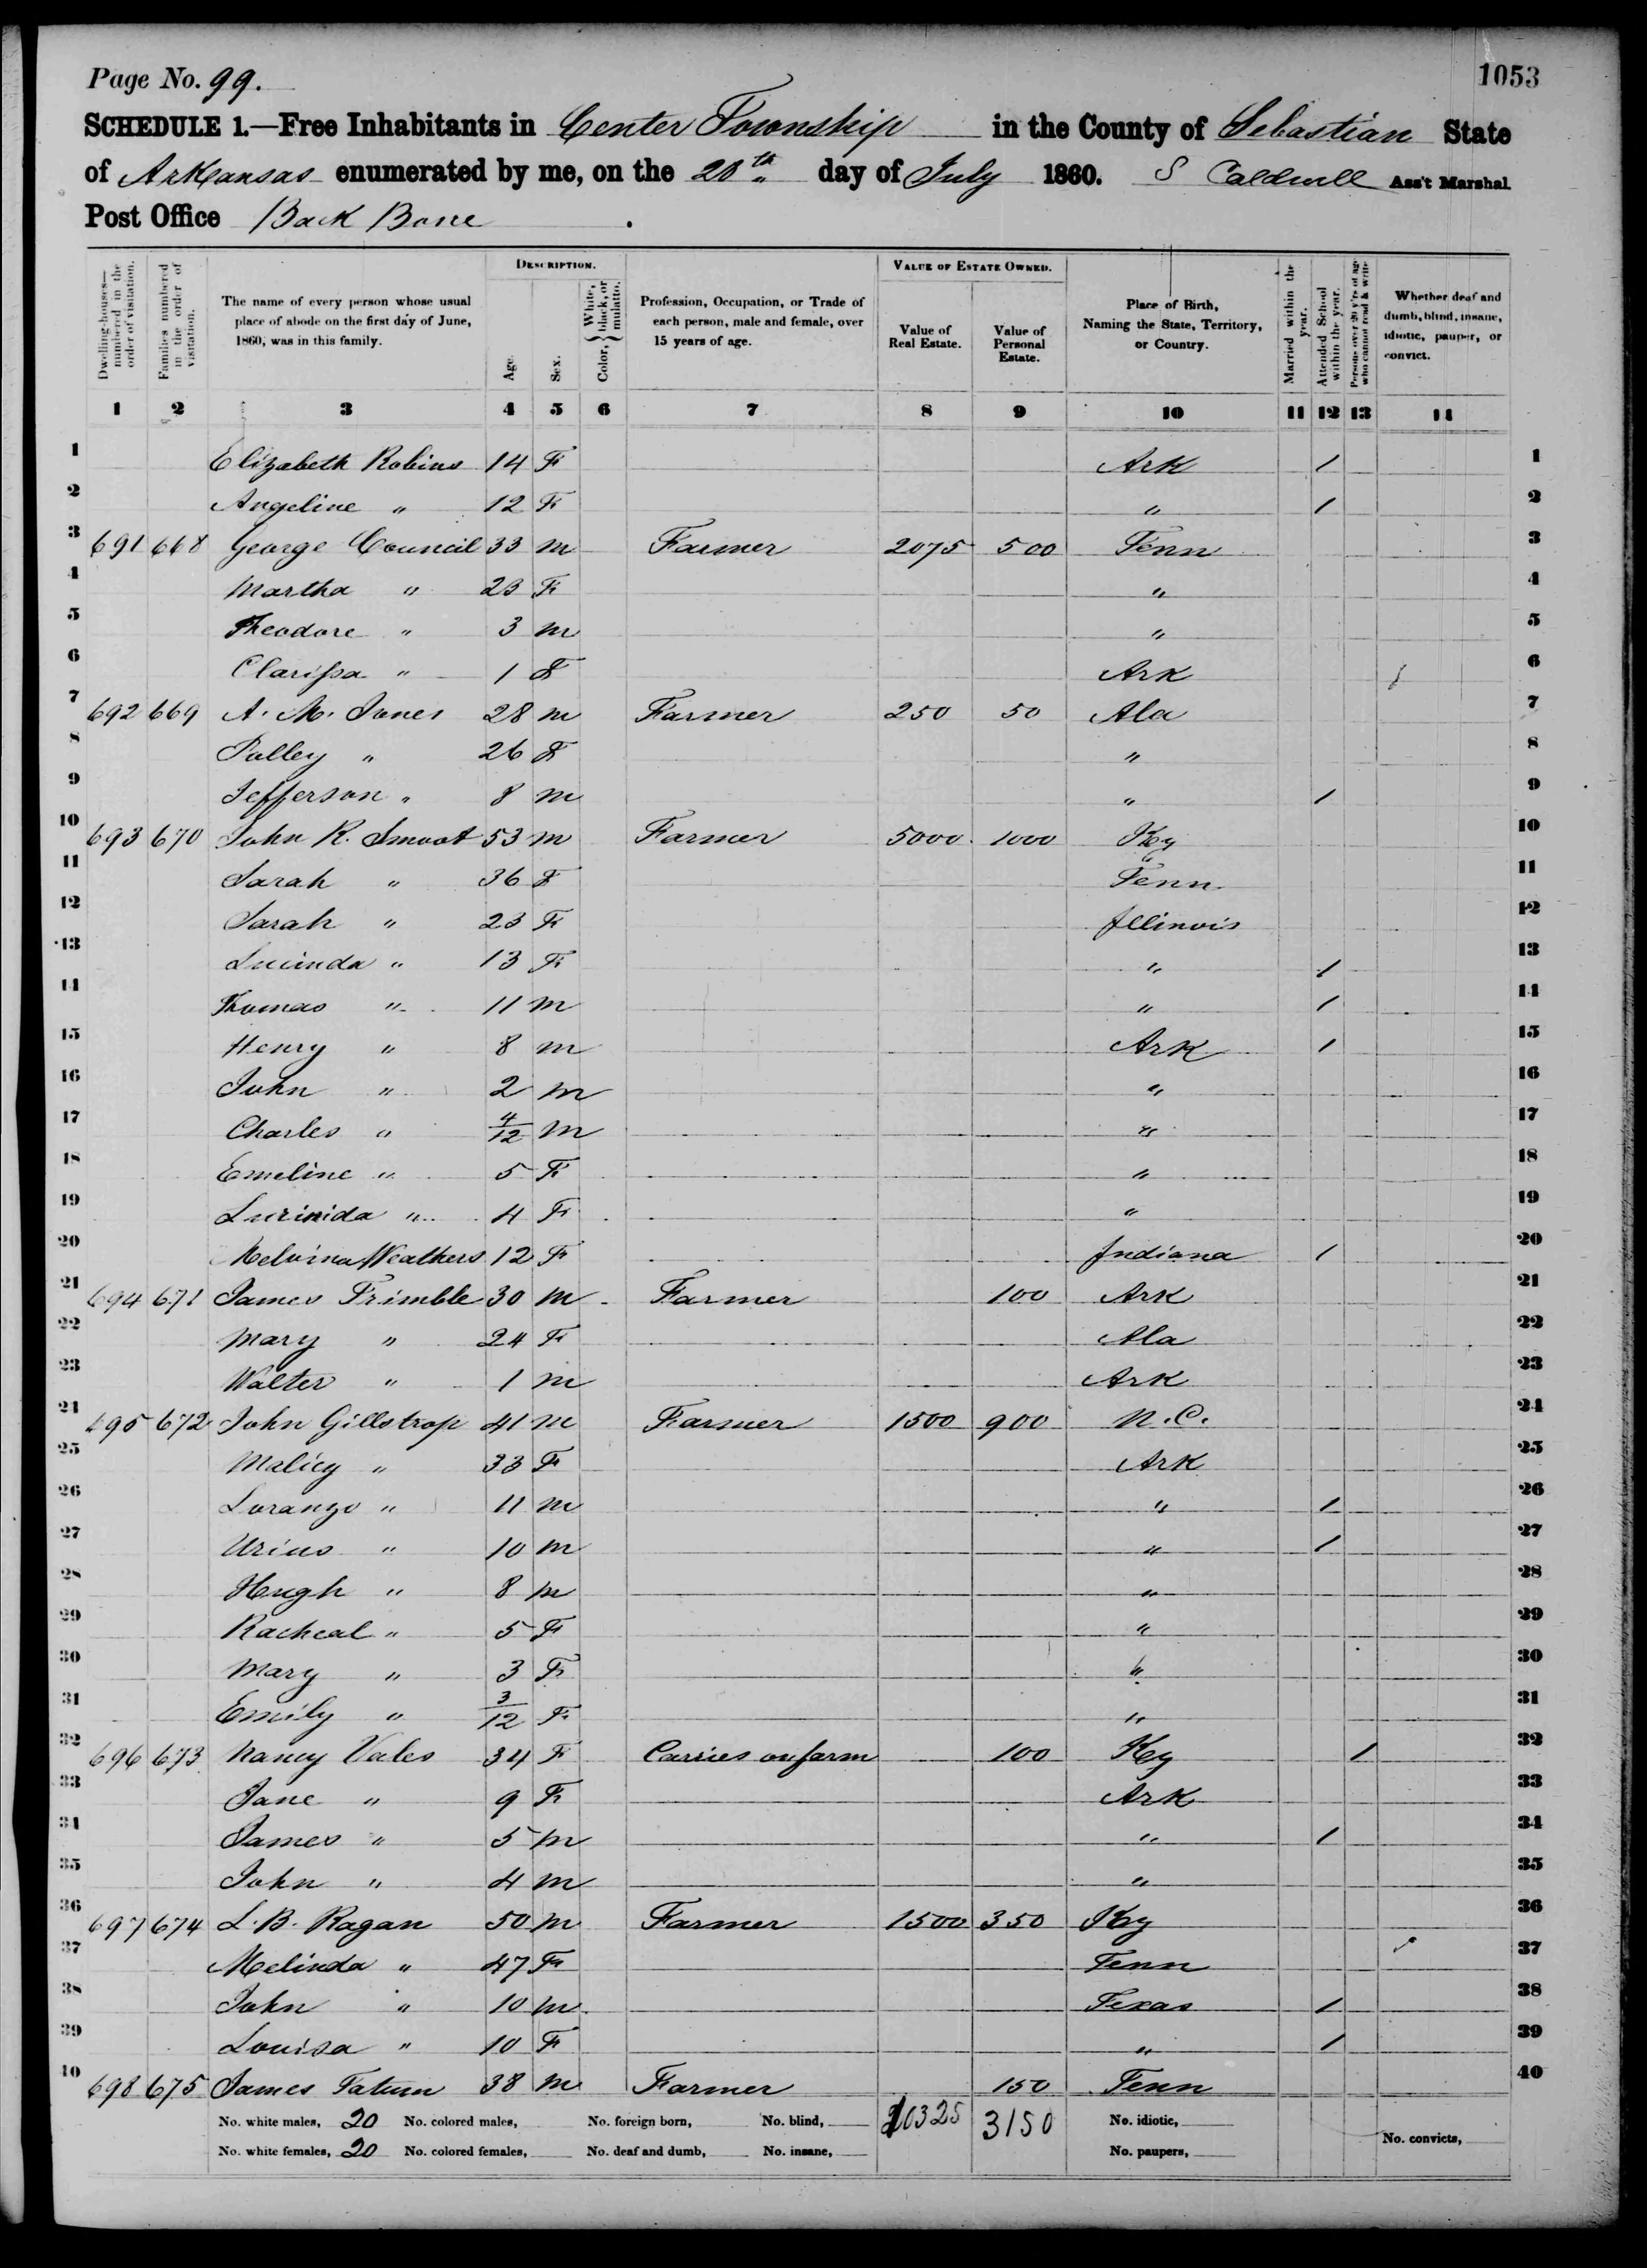 Page No. 99.
1053
SCHEDULE 1.—Free Inhabitants in Center Township in the County of Sebastian State
of Arkansas enumerated by me, on the 20th day of July 1860. S Caldwell Ass't Marshal.
Post Office Back Bone
DESCRIPTION. VALUE OF ESTATE OWNED.
Dwelling-houses—numbered in the order of visitation. Families numbered in the order of visitation. The name of every person whose usual place of abode on the first day of June, 1860, was in this family. Age. Sex. Color, White, black, or mulatto. Profession, Occupation, or Trade of each person, male and female, over 15 years of age. Value of Real Estate. Value of Personal Estate. Place of Birth, Naming the State, Territory, or Country. Married within the year. Attended School within the year. Persons over 20 y'rs of age who cannot read & write Whether deaf and dumb, blind, insane, idiotic, pauper, or convict.
1 2 3 4 5 6 7 8 9 10 11 12 13 14
1 Elizabeth Robins 14 F Ark / 1
2 Angeline " 12 F " / 2
3 691 668 George Council 33 m Farmer 2075 500 Tenn 3
4 Martha " 23 F " 4
5 Theodore " 3 m " 5
6 Clarissa " 1 F Ark 6
7 692 669 A. M. Jones 28 m Farmer 250 50 Ala 7
8 Polley " 26 F " 8
9 Jefferson " 8 m " / 9
10 693 670 John R. Smoot 53 m Farmer 5000 1000 Ky 10
11 Sarah " 36 F Tenn 11
12 Sarah " 23 F Illinois 12
13 Lucinda " 13 F " / 13
14 Thomas " 11 m " / 14
15 Henry " 8 m Ark / 15
16 John " 2 m " 16
17 Charles " 4/12 m " 17
18 Emeline " 5 F " 18
19 Lurinida " 4 F " 19
20 Melvina Weathers 12 F Indiana / 20
21 694 671 James Trimble 30 m Farmer 100 Ark 21
22 Mary " 24 F Ala 22
23 Walter " 1 m Ark 23
24 695 672 John Gillstrop 41 m Farmer 1500 900 N.C. 24
25 Malicy " 33 F Ark 25
26 Loranzo " 11 m " / 26
27 Urius " 10 m " / 27
28 Hugh " 8 m " 28
29 Racheal " 5 F " 29
30 Mary " 3 F " 30
31 Emily " 3/12 F " 31
32 696 673 Nancy Vales 34 F Carries on farm 100 Ky / 32
33 Jane " 9 F Ark 33
34 James " 5 m " / 34
35 John " 4 m " 35
36 697 674 L. B. Ragan 50 m Farmer 1500 350 Ky 36
37 Melinda " 47 F Tenn 37
38 John " 10 m Texas / 38
39 Louisa " 10 F " / 39
40 698 675 James Tatum 38 m Farmer 150 Tenn 40
No. white males, 20 No. colored males, No. foreign born, No. blind, 10325 3150 No. idiotic,
No. white females, 20 No. colored females, No. deaf and dumb, No. insane, No. paupers, No. convicts,